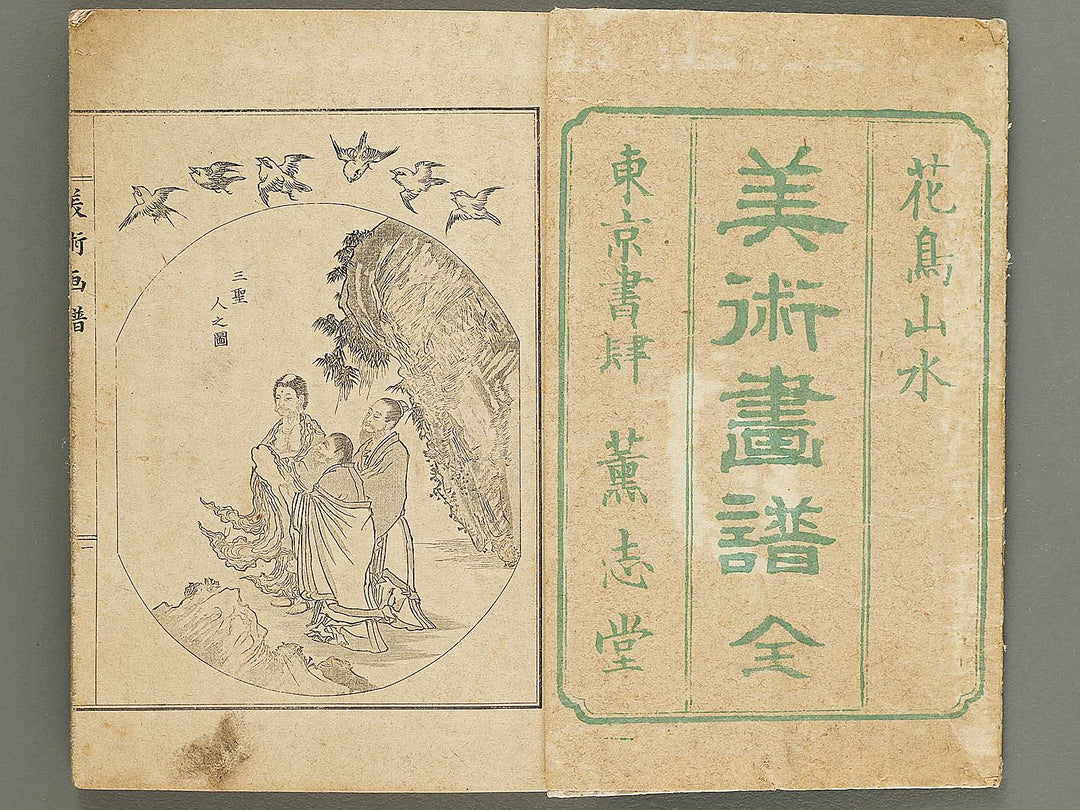 花鳥山水
美術畫譜 全
東京書肆 薫志堂
三聖
人之圖
美術画譜
一